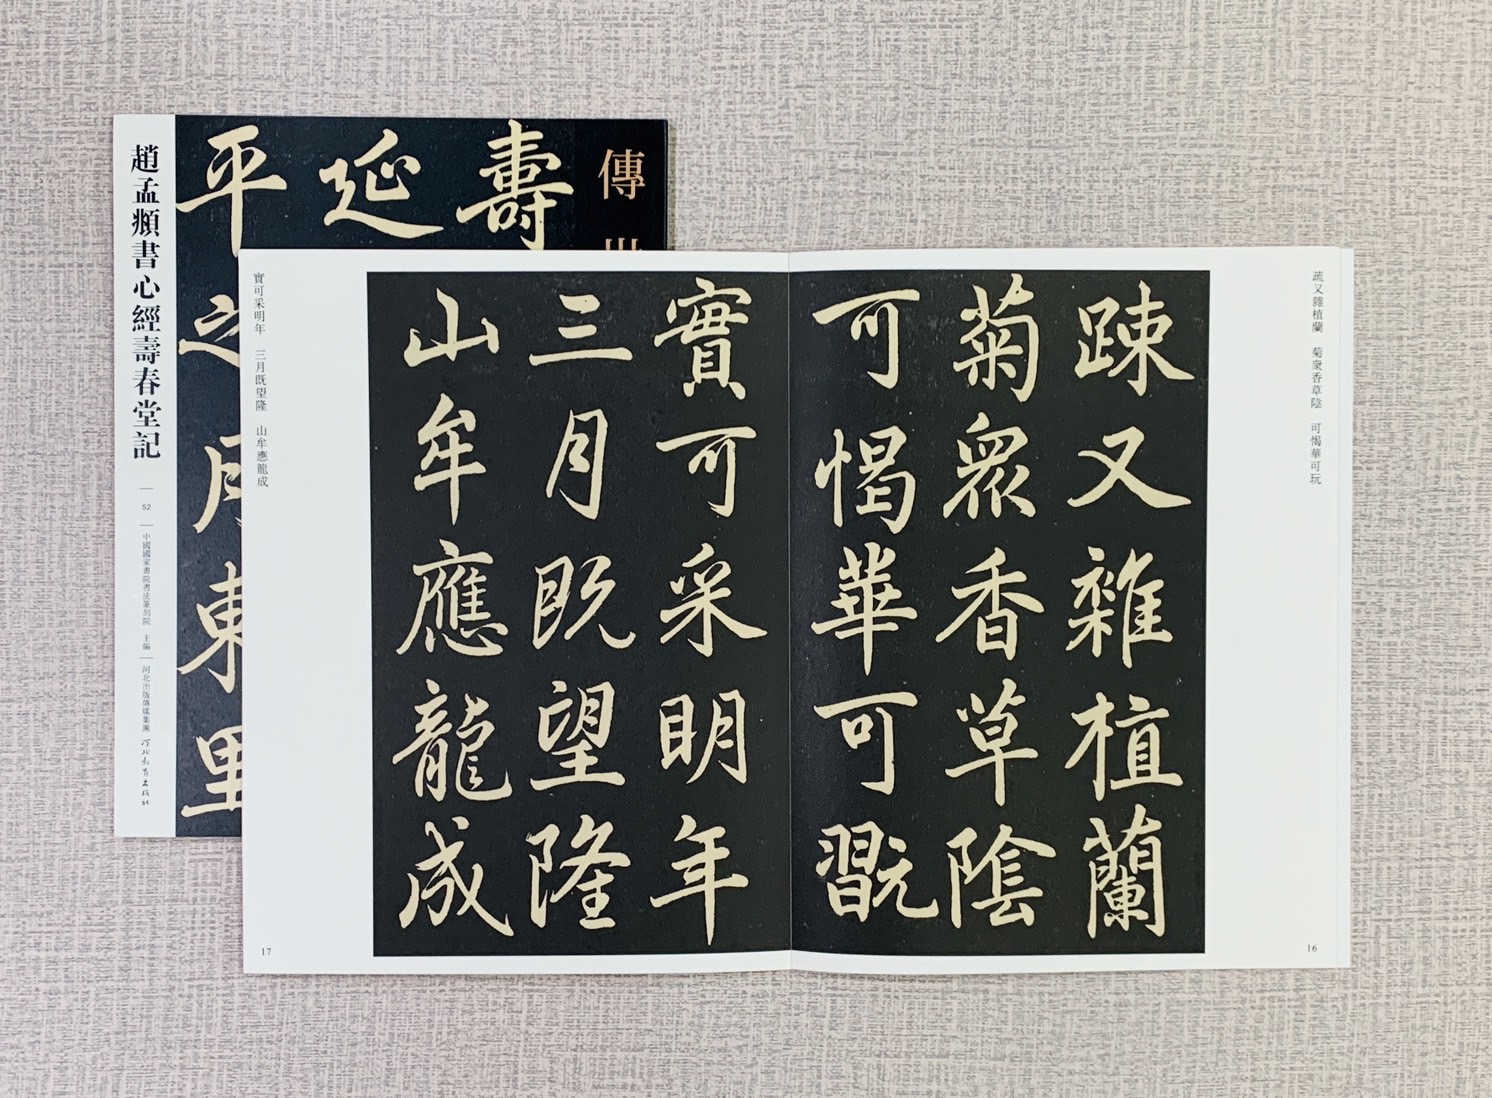 趙孟頫書心經壽春堂記
52
中國國家畫院書法篆刻院 主編
河北出版傳媒集團
河北教育出版社
傳
壽
延
平
之
東
里
疏又雜植蘭 菊衆香草陰 可愒華可玩
踈又雜植蘭
菊衆香草陰
可愒華可翫
16
實可采明年
三月既望隆
山牟應龍成
實可采明年 三月既望隆 山牟應龍成
17